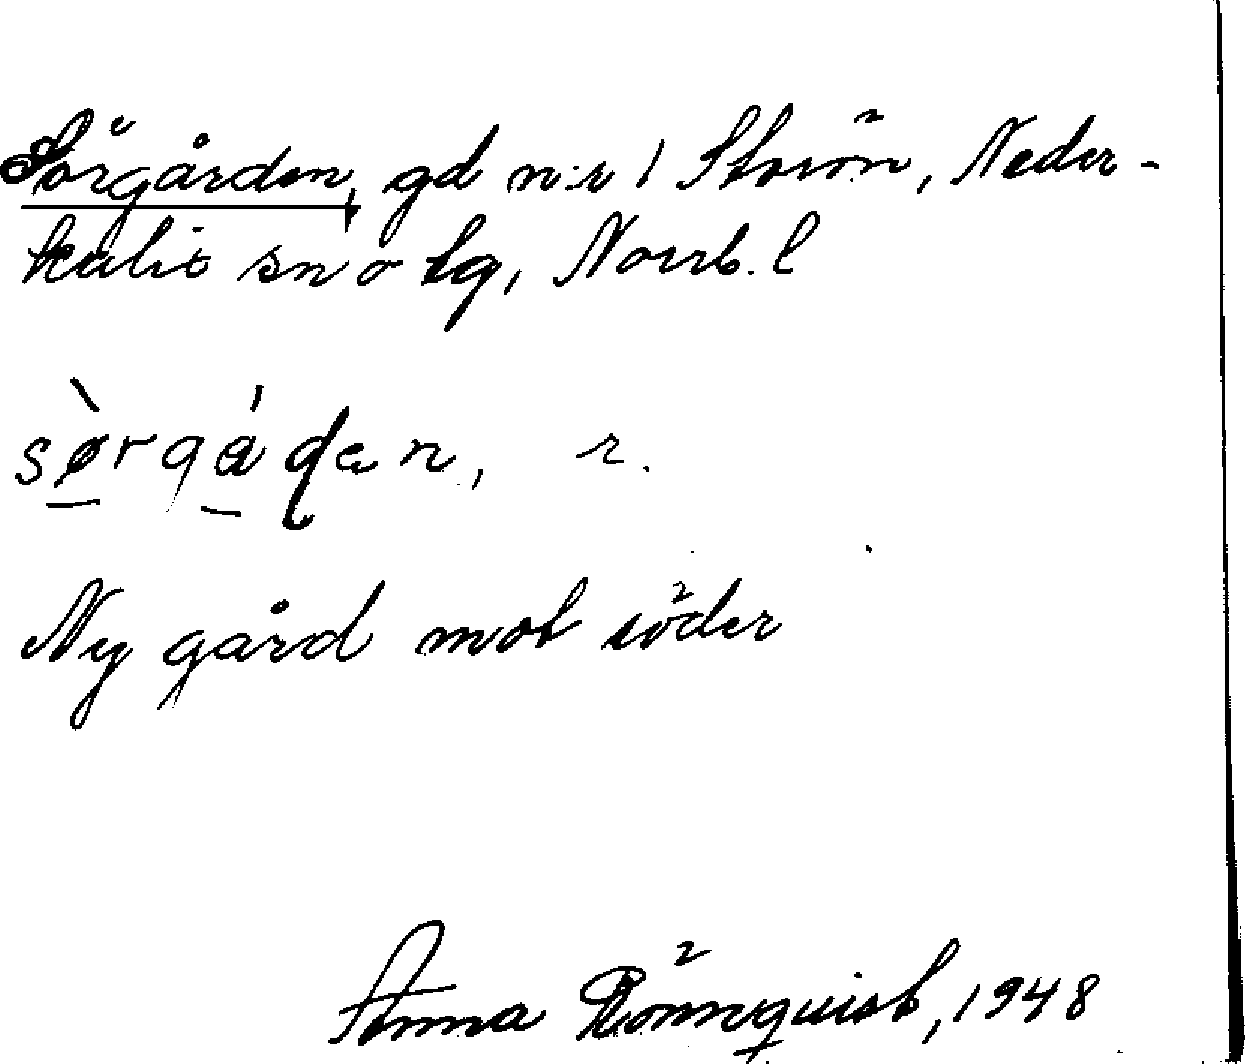 Sörgården, gd n:r 1 Storön, Neder-
kalix sn o tg, Norrb. l
sø̀rgá̱ɖen, r.
Ny gård mot söder
Anna Rönnquist, 1948